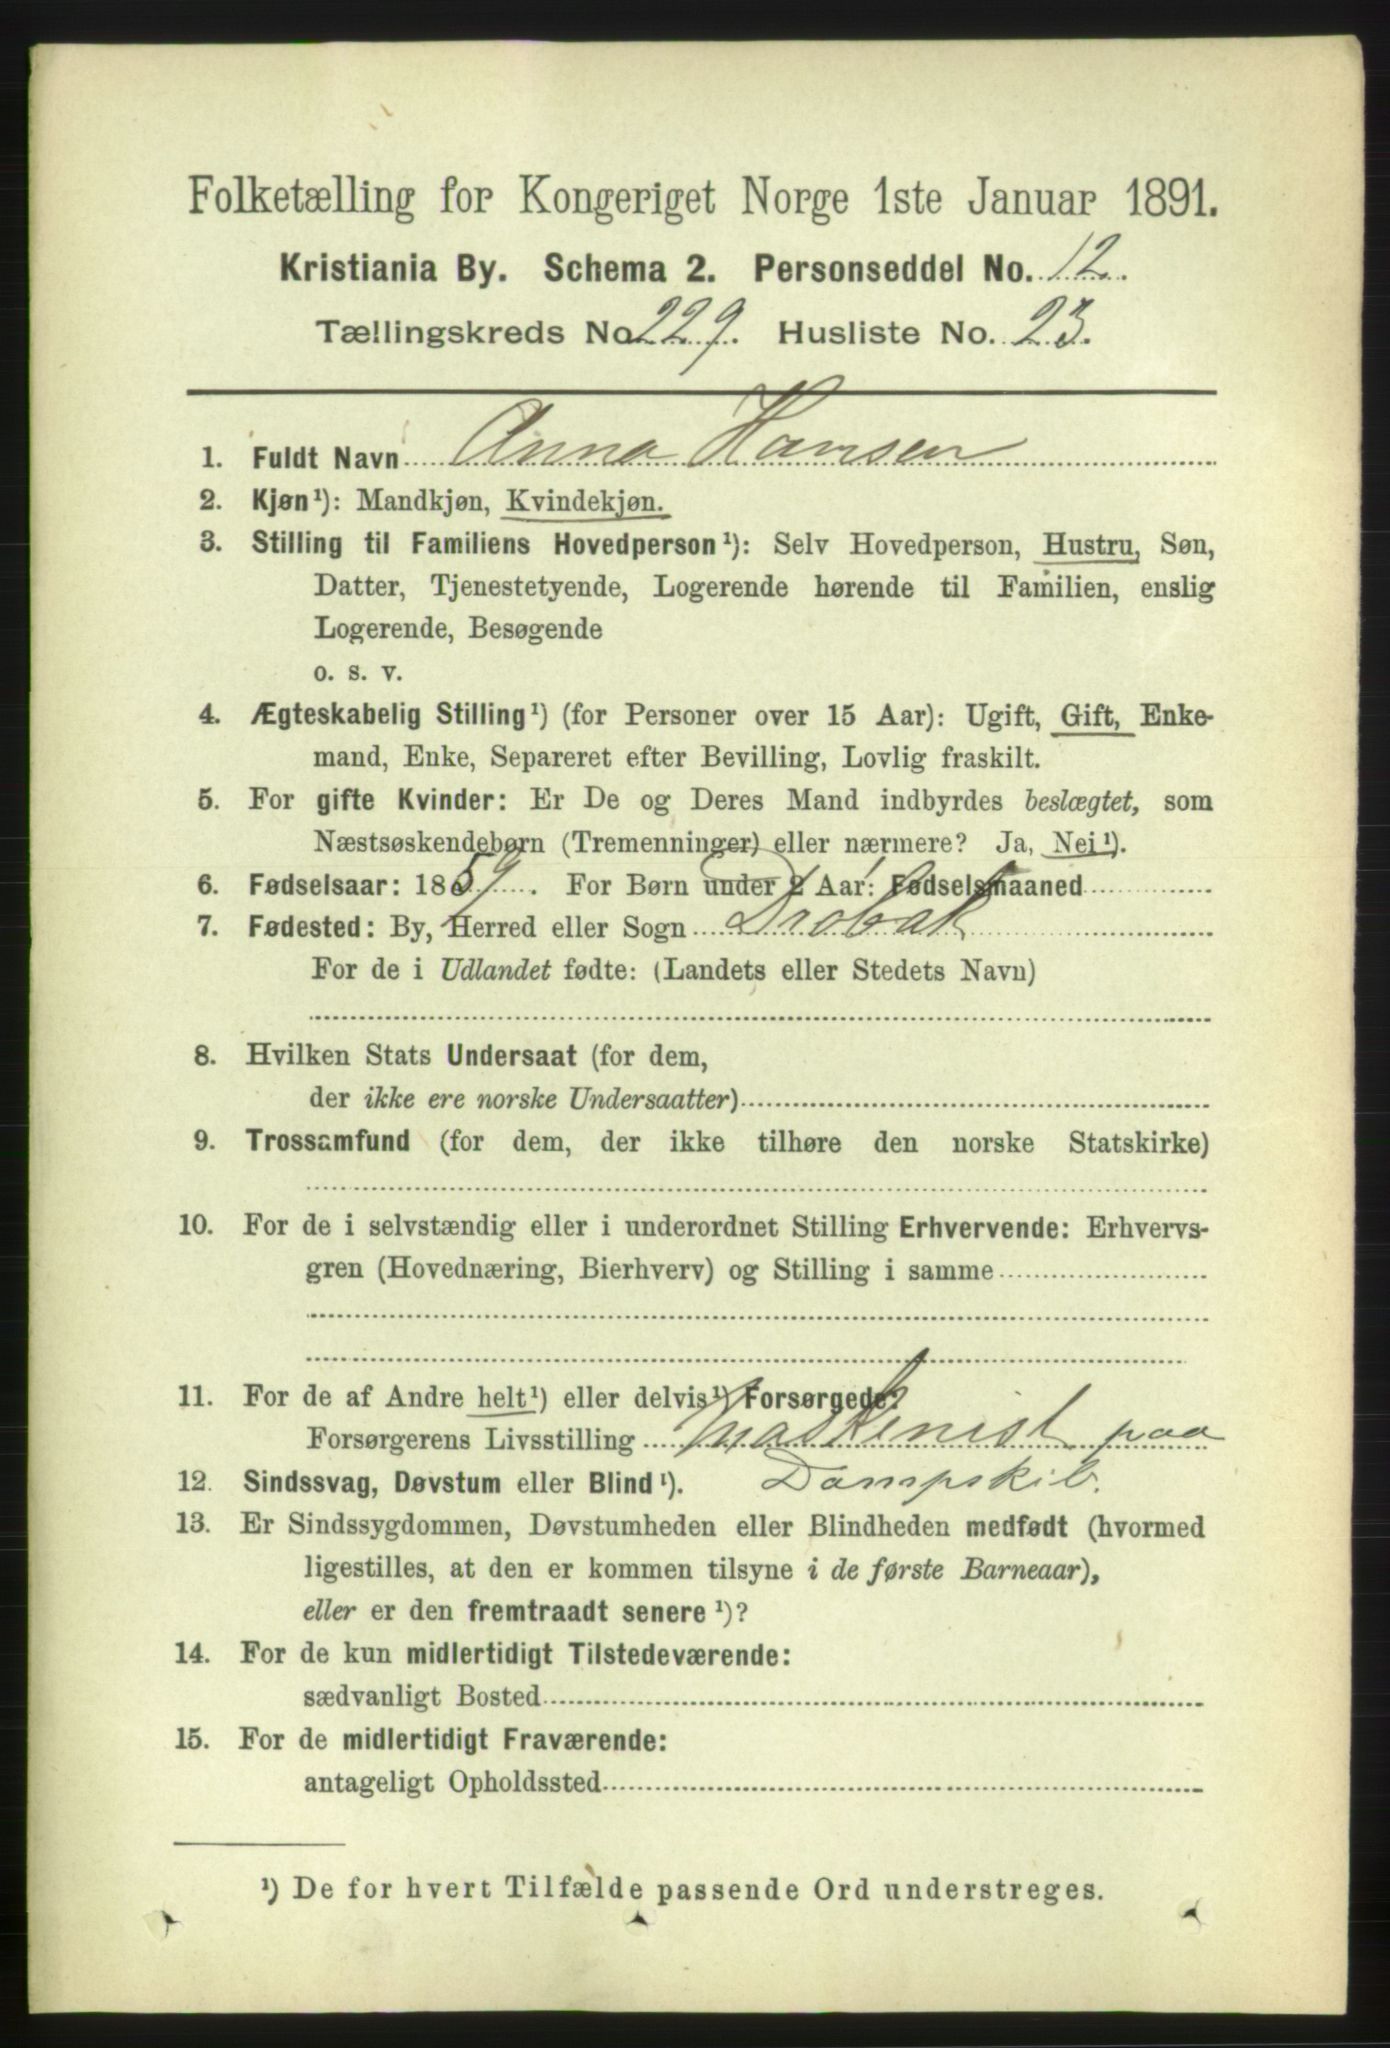 Folketælling for Kongeriget Norge 1ste Januar 1891.
Kristiania By. Schema 2. Personseddel No. 12.
Tællingskreds No. 229. Husliste No. 23.
1. Fuldt Navn Anna Hansen
2. Kjøn¹): Mandkjøn, Kvindekjøn.
3. Stilling til Familiens Hovedperson¹): Selv Hovedperson, Hustru, Søn,
Datter, Tjenestetyende, Logerende hørende til Familien, enslig
Logerende, Besøgende
o. s. v.
4. Ægteskabelig Stilling¹) (for Personer over 15 Aar): Ugift, Gift, Enke-
mand, Enke, Separeret efter Bevilling, Lovlig fraskilt.
5. For gifte Kvinder: Er De og Deres Mand indbyrdes beslægtet, som
Næstsøskendebørn (Tremenninger) eller nærmere? Ja, Nei¹).
6. Fødselsaar: 1859. For Børn under 2 Aar: Fødselsmaaned
7. Fødested: By, Herred eller Sogn Drøbak
For de i Udlandet fødte: (Landets eller Stedets Navn)
8. Hvilken Stats Undersaat (for dem,
der ikke ere norske Undersaatter)
9. Trossamfund (for dem, der ikke tilhøre den norske Statskirke)
10. For de i selvstændig eller i underordnet Stilling Erhvervende: Erhvervs-
gren (Hovednæring, Bierhverv) og Stilling i samme
11. For de af Andre helt¹) eller delvis¹) Forsørgede:
Forsørgerens Livsstilling Maskinist paa
12. Sindssvag, Døvstum eller Blind¹). Dampskib.
13. Er Sindssygdommen, Døvstumheden eller Blindheden medfødt (hvormed
ligestilles, at den er kommen tilsyne i de første Barneaar),
eller er den fremtraadt senere¹)?
14. For de kun midlertidigt Tilstedeværende:
sædvanligt Bosted
15. For de midlertidigt Fraværende:
antageligt Opholdssted
¹) De for hvert Tilfælde passende Ord understreges.